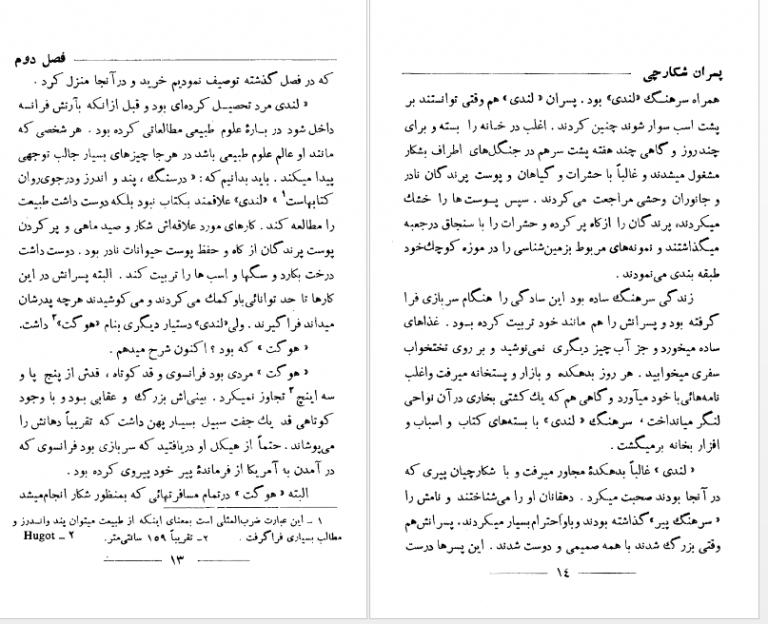 فصل دوم
که در فصل گذشته توصیف نمودیم خرید و در آنجا منزل کرد .
« لندی مرد تحصیل کرده‌ای بود و قبل از آنکه بآرتش فرانسه
داخل شود در بارهٔ علوم طبیعی مطالعاتی کرده بود . هر شخصی که
مانند او عالم علوم طبیعی باشد در هر جا چیزهای بسیار جالب توجهی
پیدا میکند . باید بدانیم که : « درسنگ ، پند و اندرز و درجوی روان
کتابهاست۱ » «لندی» علاقمند بکتاب نبود بلکه دوست داشت طبیعت
را مطالعه کند . کارهای مورد علاقه‌اش شکار و صید ماهی و پر کردن
پوست پرندگان از کاه و حفظ پوست حیوانات نادر بود . دوست داشت
درخت بکارد و سگها و اسب ها را تربیت کند . البته پسرانش در این
کارها تا حد توانائی باو کمك می‌کردند و می‌کوشیدند هرچه پدرشان
میداند فراگیرند . ولی «لندی» دستیار دیگری بنام «هوگت»۲ داشت.
« هوگت » که بود ؟ اکنون شرح میدهم .
« هوگت » مردی بود فرانسوی و قد کوتاه ، قدش از پنج پا و
سه اینچ۳ تجاوز نمیکرد . بینی‌اش بزرگ و عقابی بود و با وجود
کوتاهی قد یك جفت سبیل بسیار پهن داشت که تقریباً دهانش را
می‌پوشاند . حتماً از هیکل او دریافتید که سربازی بود فرانسوی که
در آمدن به آمریکا از فرماندهٔ پیر خود پیروی کرده بود .
البته « هوگت » در تمام مسافرتهائی که بمنظور شکار انجام میشد
۱ ـ این عبارت ضرب‌المثلی است بمعنای اینکه از طبیعت میتوان پند و اندرز و
مطالب بسیاری فراگرفت . ۲ـ تقریباً ۱۵۹ سانتی‌متر. ۲ ـ Hugot
۱۳
پسران شکارچی
همراه سرهنگ «لندی» بود . پسران « لندی» هم وقتی توانستند بر
پشت اسب سوار شوند چنین کردند . اغلب در خانه را بسته و برای
چند روز و گاهی چند هفته پشت سرهم در جنگل‌های اطراف بشکار
مشغول میشدند و غالباً با حشرات و گیاهان و پوست پرندگان نادر
و جانوران وحشی مراجعت می‌کردند . سپس پوست‌ها را خشك
میکردند، پرندگان را از کاه پر کرده و حشرات را با سنجاق در جعبه
میگذاشتند و نمونه‌های مربوط بزمین‌شناسی را در موزه کوچك خود
طبقه بندی می‌نمودند .
زندگی سرهنگ ساده بود این سادگی را هنگام سربازی فرا
گرفته بود و پسرانش را هم مانند خود تربیت کرده بود . غذاهای
ساده میخورد و جز آب چیز دیگری نمی‌نوشید و بر روی تختخواب
سفری میخوابید . هر روز بدهکده و بازار و پستخانه میرفت و اغلب
نامه‌هائی با خود میآورد و گاهی هم که یك کشتی بخاری در آن نواحی
لنگر میانداخت ، سرهنگ « لندی » با بسته‌های کتاب و اسباب و
افزار بخانه برمیگشت .
« لندی » غالباً بدهکدهٔ مجاور میرفت و با شکارچیان پیری که
در آنجا بودند صحبت میکرد . دهقانان او را می‌شناختند و نامش را
« سرهنگ پیر» گذاشته بودند و باو احترام بسیار میکردند. پسرانش هم
وقتی بزرگ شدند با همه صمیمی و دوست شدند . این پسرها درست
۱۴